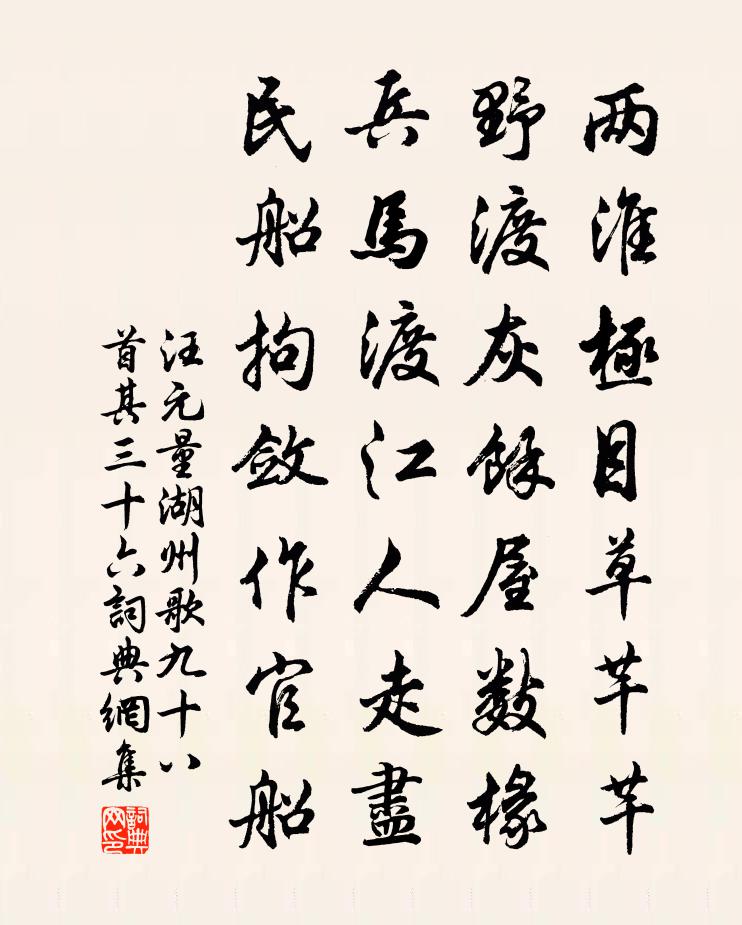 两淮極目草芊芊
野渡灰餘屋數椽
兵馬渡江人走盡
民船拘斂作官船
汪元量湖州歌九十八
首其三十六詞典網集
詞典网印